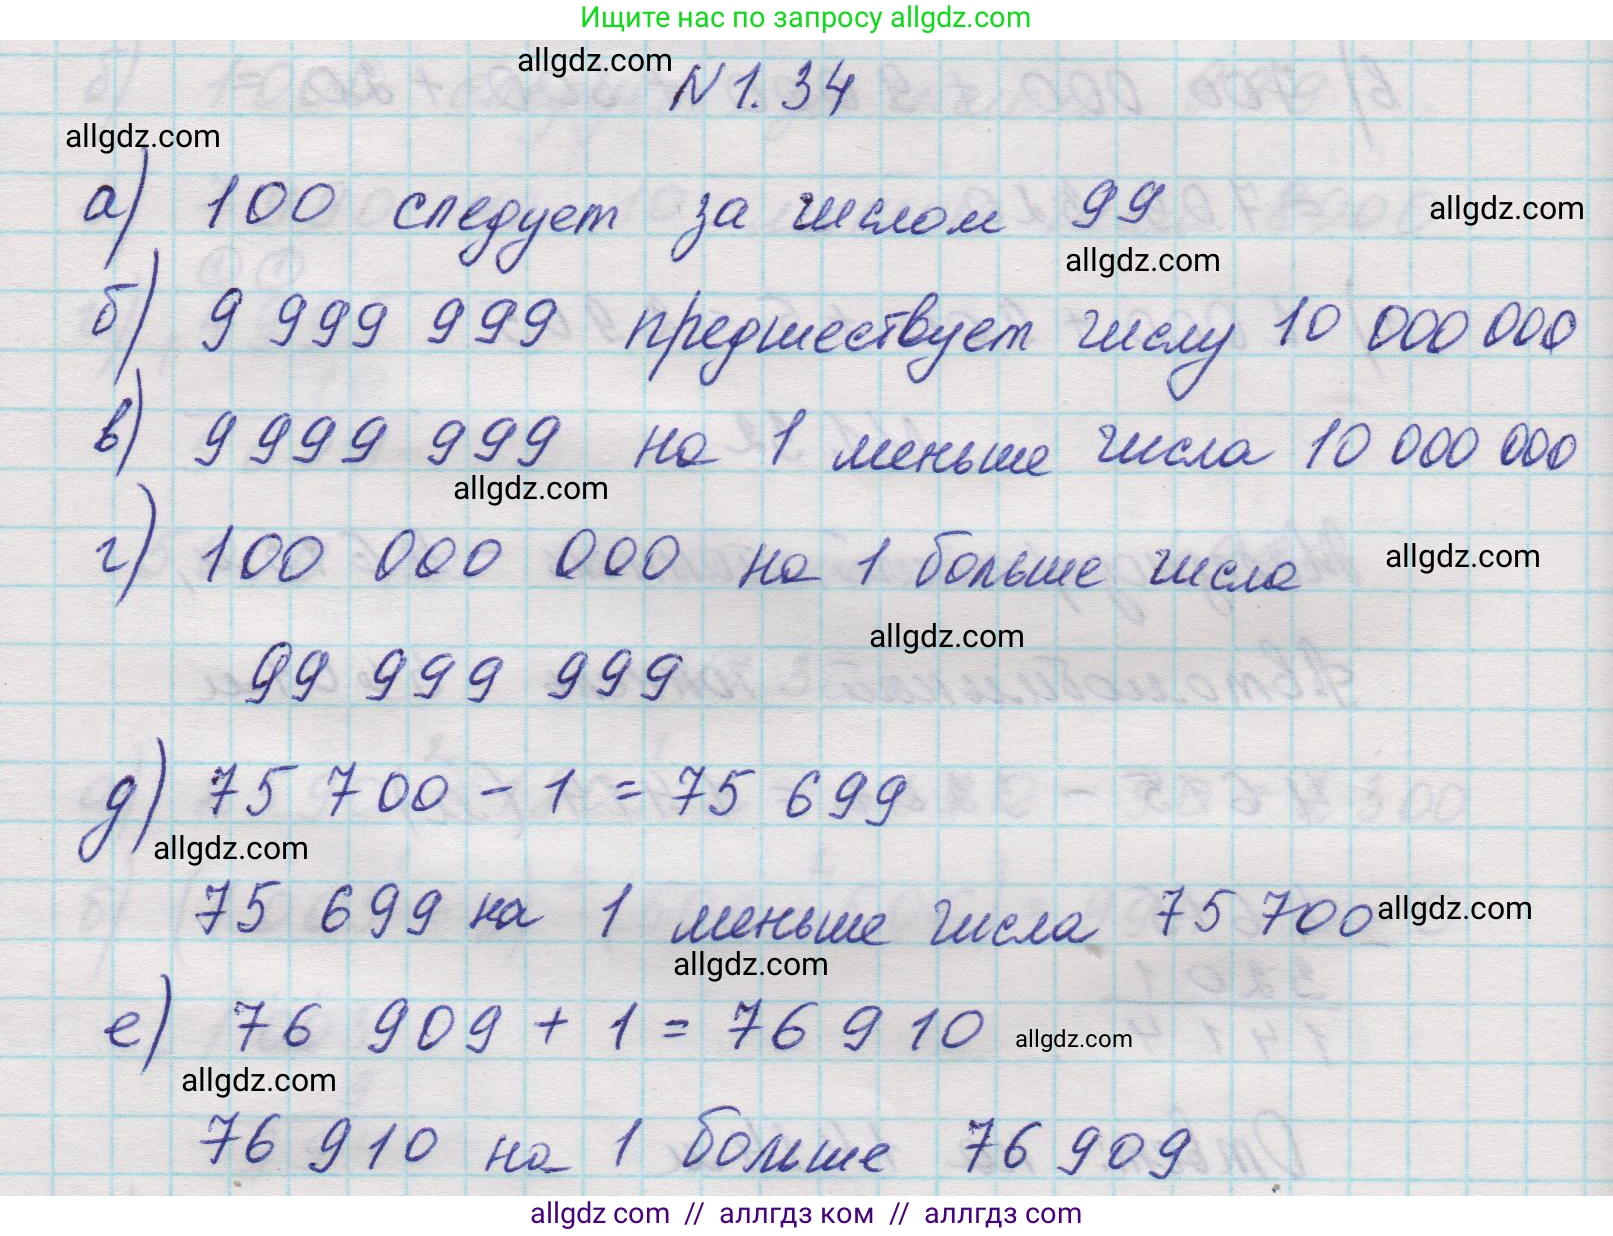 Ищите нас по запросу allgdz.com
allgdz.com
N 1.34
allgdz.com
а) 100 следует за числом 99
allgdz.com
allgdz.com
б) 9 999 999 предшествует числу 10 000 000
в) 9 999 999 на 1 меньше числа 10 000 000
allgdz.com
г) 100 000 000 на 1 больше числа
allgdz.com
99 999 999
allgdz.com
д) 75 700 - 1 = 75 699
allgdz.com
75 699 на 1 меньше числа 75 700
allgdz.com
allgdz.com
е) 76 909 + 1 = 76 910
allgdz.com
allgdz.com
76 910 на 1 больше 76 909
allgdz com // аллгдз ком // аллгдз com